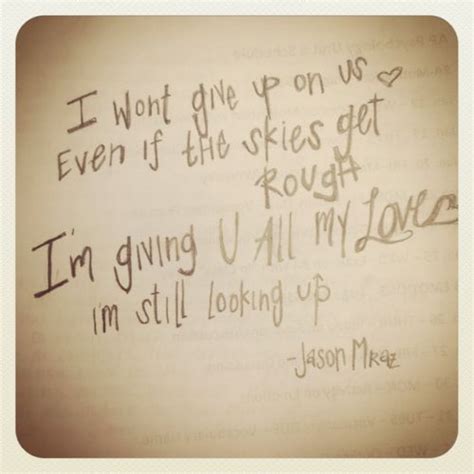 I wont give up on us ♡
Even if the skies get
Rough
I'm giving U All my Love
im still looking up
-Jason Mraz